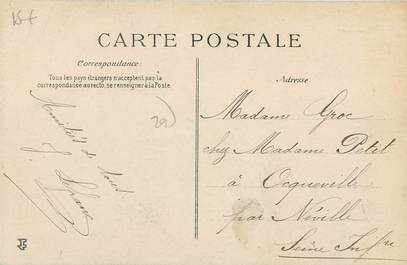 15 f
CARTE POSTALE
Correspondance:
Tous les pays étrangers n'acceptent pas la
correspondance au recto, se renseigner à la Poste
Adresse
Amitiés de tous
J.
20
Madame Groc
chez Madame Petit
à Ocqueville
par Néville
Seine Infre